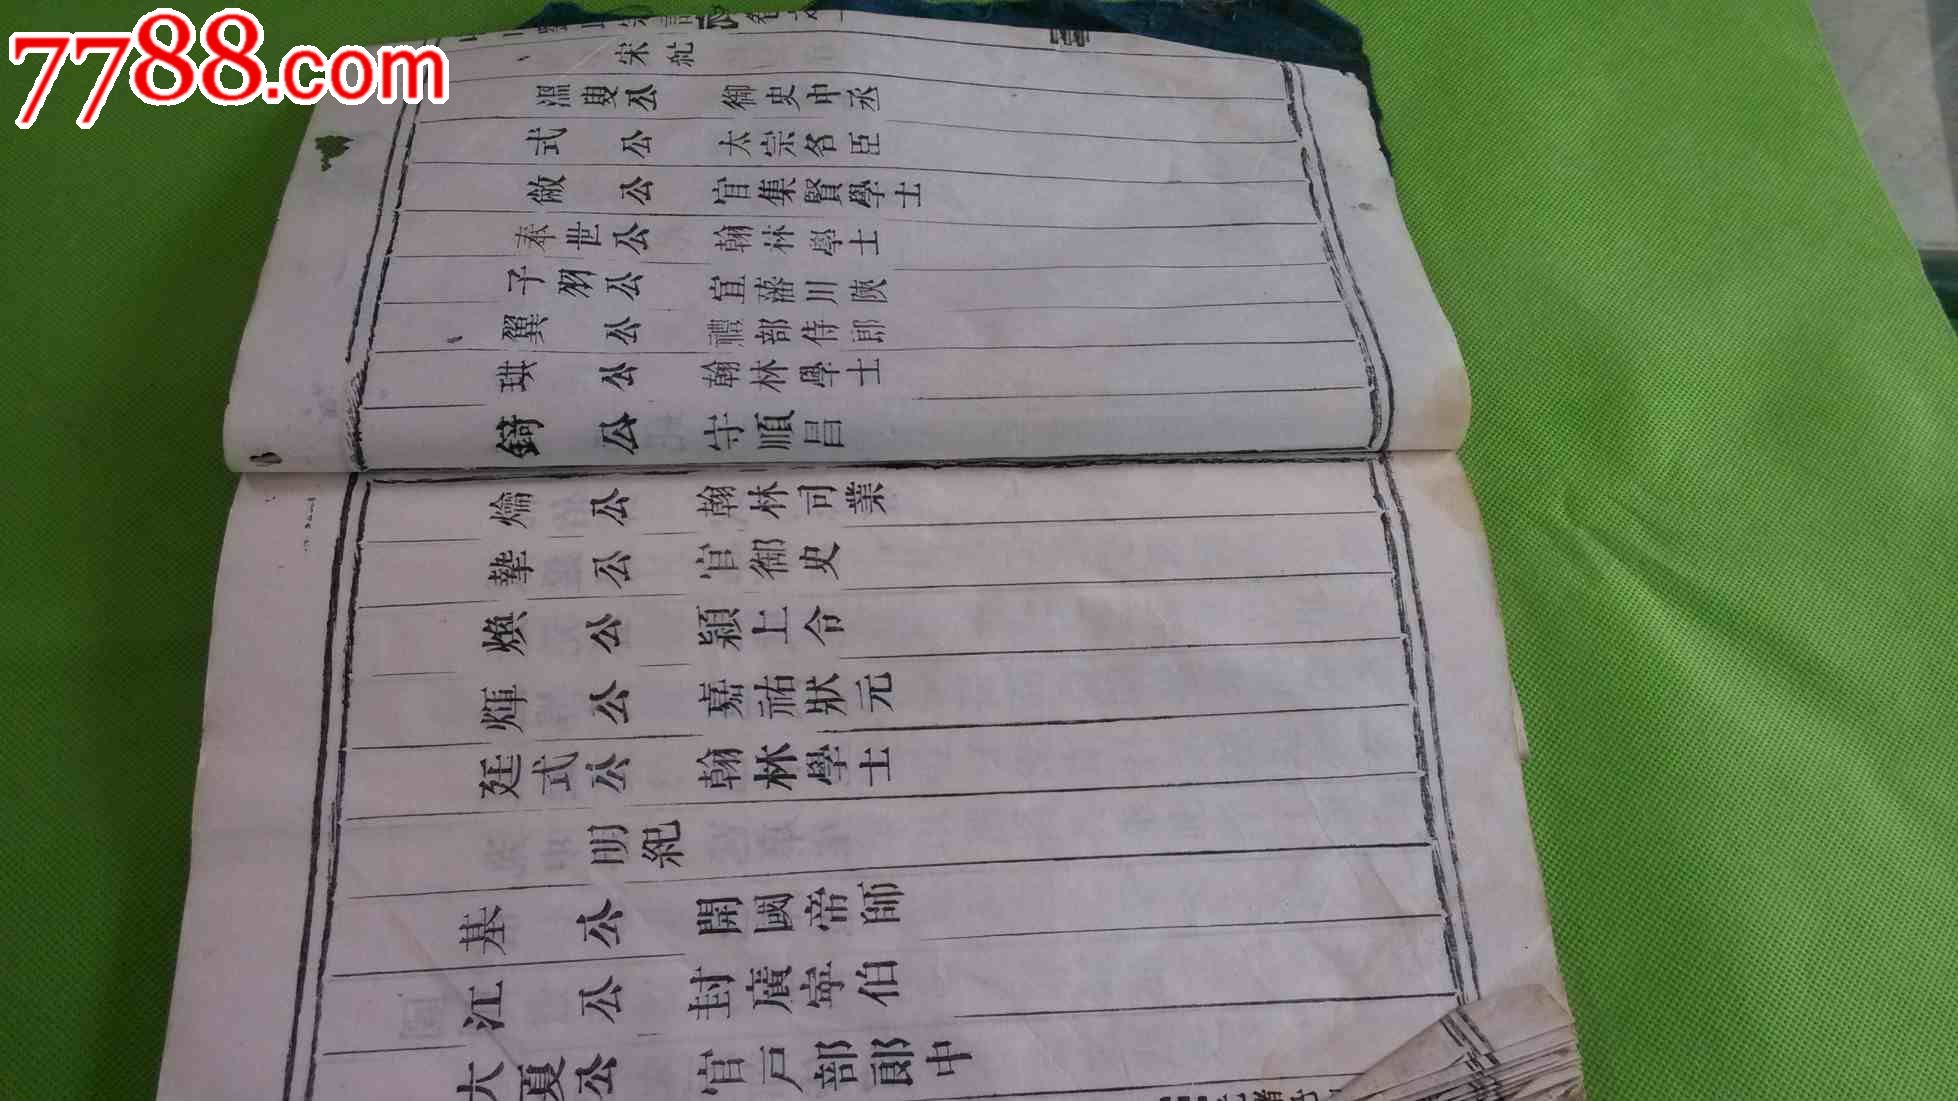 7788.com
宋紀
溫叟公 御史中丞
式公 太宗名臣
敞公 官集賢學士
奉世公 翰林學士
子羽公 宣藩川陝
翼公 禮部侍郎
珙公 翰林學士
錡公 守順昌
爚公 翰林司業
摯公 官御史
煥公 潁上令
煇公 嘉祐狀元
廷式公 翰林學士
明紀
基公 開國帝師
江公 封廣寧伯
大夏公 官戶部郎中